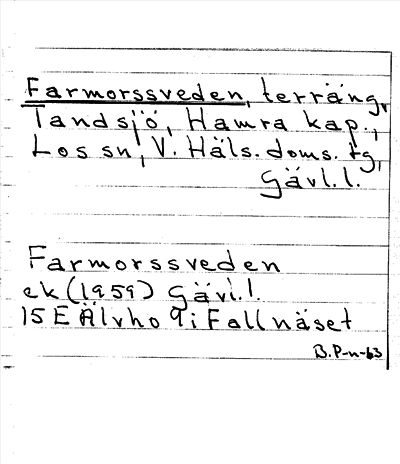 Farmorssveden, terräng,
Tandsjö, Hamra kap.,
Los sn, V. Häls. doms. tg,
Gävl.l.
Farmorssveden
ek (1959) Gävl.l.
15 E Älvho 9 i Fallnäset
B.P-n-63